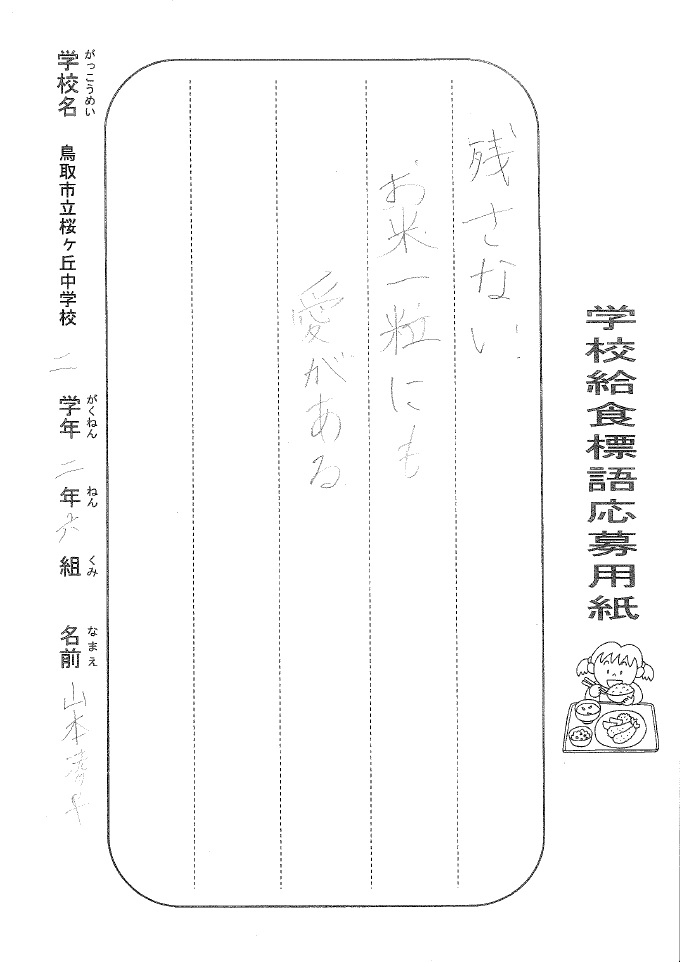 学校給食標語応募用紙
残さない
お米一粒にも
愛がある
がっこうめい
学校名 鳥取市立桜ヶ丘中学校
がくねん ねん くみ なまえ
二 学年 二 年 六 組 名前 山本